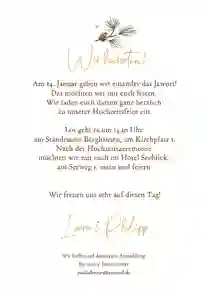 Wir heiraten!
Am 14. Januar geben wir einander das Jawort!
Das möchten wir mit euch feiern.
Wir laden euch darum ganz herzlich
zu unserer Hochzeitsfeier ein.
Los geht es um 14.30 Uhr
am Standesamt Berghausen, am Kirchplatz 1.
Nach der Hochzeitszeremonie
möchten wir mit euch im Hotel Seeblick,
am Seeweg 1, essen und feiern.
Wir freuen uns sehr auf diesen Tag!
Laura & Philipp
Wir hoffen auf